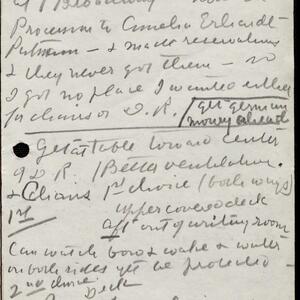 Procession to Amelia Erhardt -
Putnam - & made reservations
& they never got them - so
I got no place I wanted either
for chairs or D.R. / get german
money ahead
Get a table toward center
of D.R. / Better ventilation.
& Chairs 1st choice (both ways)
1st upper covered deck
aft out of writing room
Can watch bow & wake & water
on both sides yet be protected -
2nd choice Deck